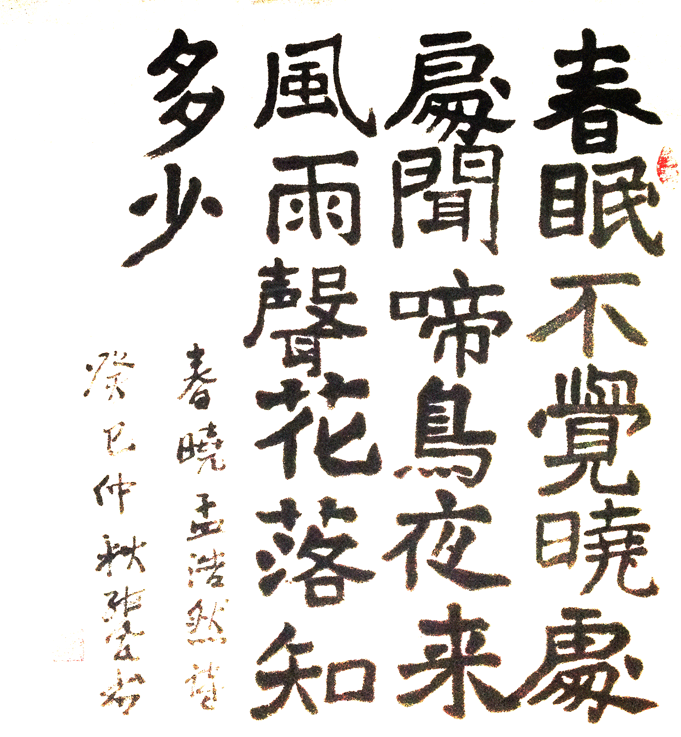 春眠不覺曉處
處聞啼鳥夜来
風雨聲花落知
多少
春曉孟浩然詩
癸巳仲秋